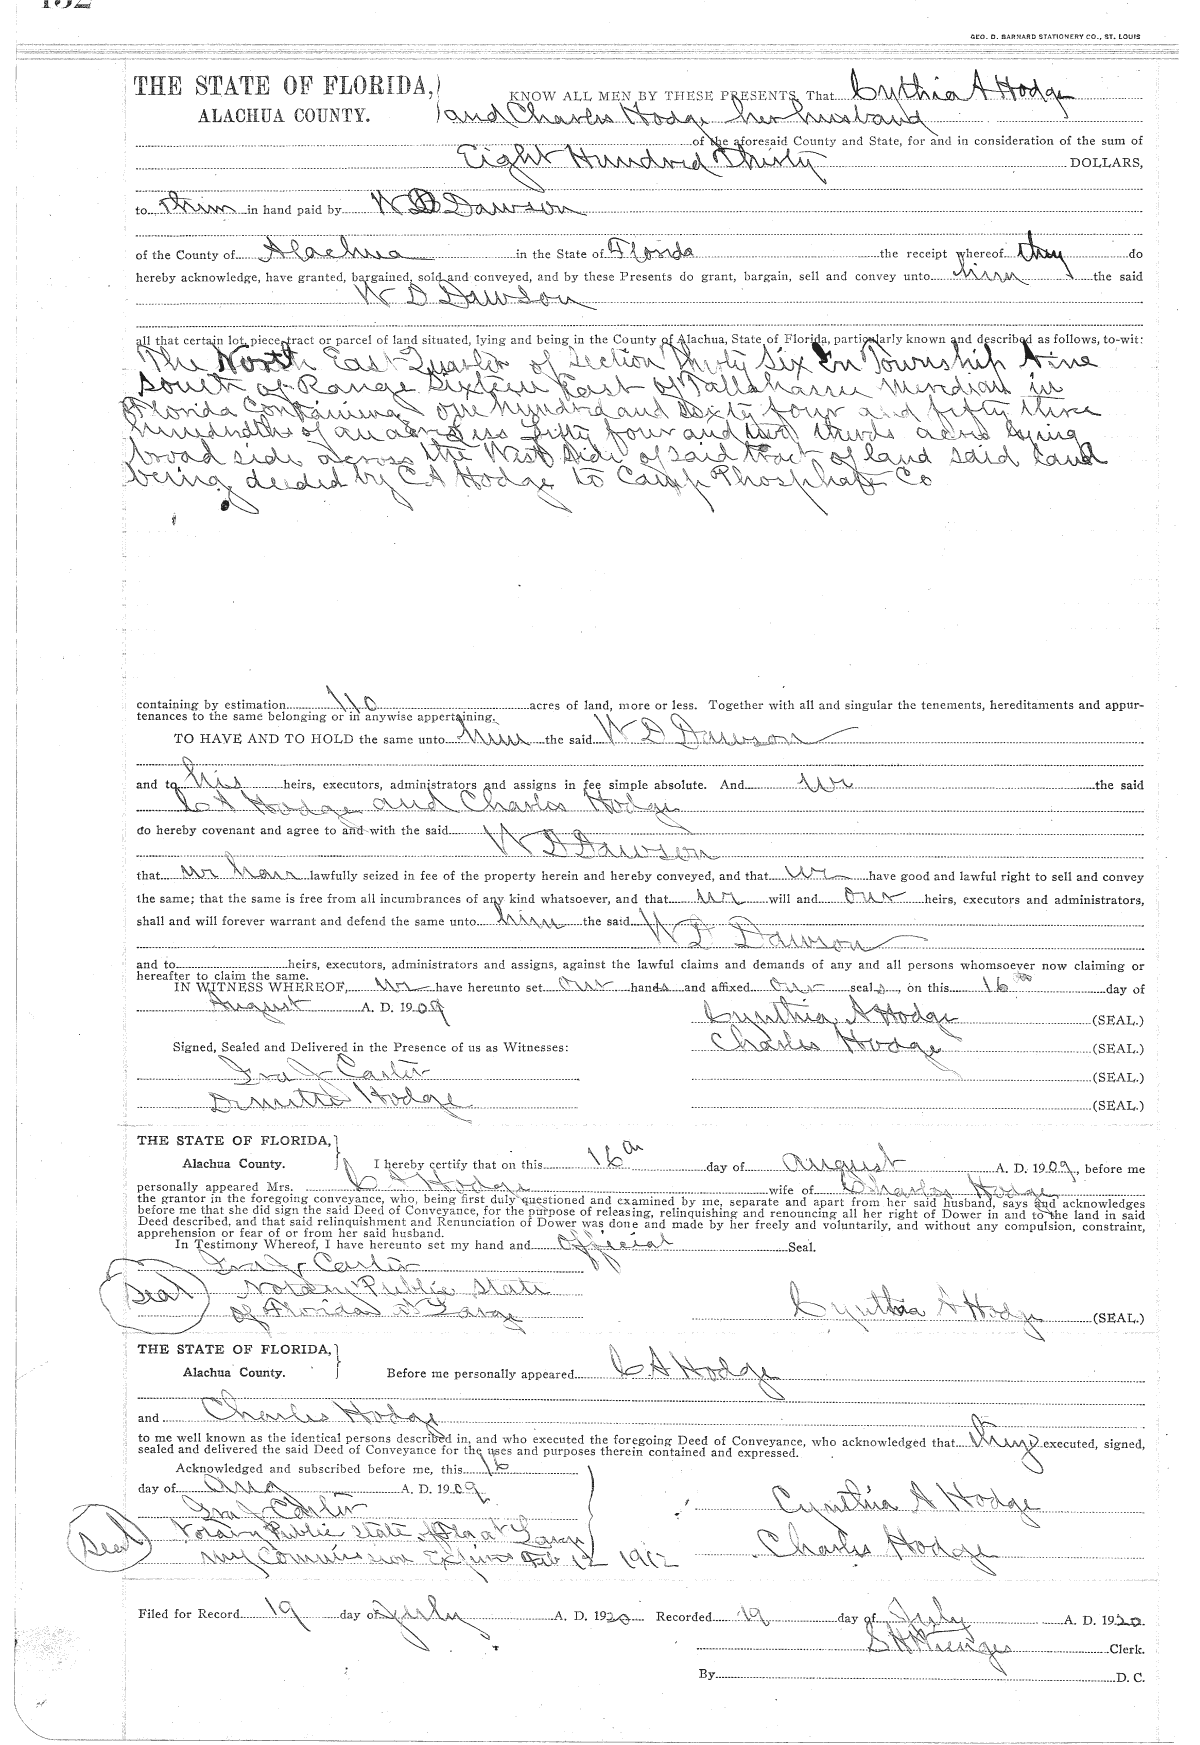 GEO. D. BARNARD STATIONERY CO., ST. LOUIS
THE STATE OF FLORIDA, KNOW ALL MEN BY THESE PRESENTS, That Cynthia A Hodge
ALACHUA COUNTY. and Charles Hodge her husband
of the aforesaid County and State, for and in consideration of the sum of
Eight Hundred Thirty DOLLARS,
to them in hand paid by W D Dawson
of the County of Alachua in the State of Florida the receipt whereof they do
hereby acknowledge, have granted, bargained, sold and conveyed, and by these Presents do grant, bargain, sell and convey unto him the said
W D Dawson
all that certain lot, piece, tract or parcel of land situated, lying and being in the County of Alachua, State of Florida, particularly known and described as follows, to-wit:
The North East Quarter of Section Thirty Six In Township Nine
South of Range Sixteen East of Tallahassee Meridian in
Florida Containing one hundred and sixty four and fifty three
hundredths of an acre less fifty four and two thirds acres lying
broad side across the West Side of said tract of land said land
being deeded by C A Hodge to Camp Phosphate Co
containing by estimation 110 acres of land, more or less. Together with all and singular the tenements, hereditaments and appur-
tenances to the same belonging or in anywise appertaining.
TO HAVE AND TO HOLD the same unto him the said W D Dawson
and to his heirs, executors, administrators and assigns in fee simple absolute. And we the said
C A Hodge and Charles Hodge
do hereby covenant and agree to and with the said
W D Dawson
that we have lawfully seized in fee of the property herein and hereby conveyed, and that we have good and lawful right to sell and convey
the same; that the same is free from all incumbrances of any kind whatsoever, and that we will and our heirs, executors and administrators,
shall and will forever warrant and defend the same unto him the said
W D Dawson
and to heirs, executors, administrators and assigns, against the lawful claims and demands of any and all persons whomsoever now claiming or
hereafter to claim the same.
IN WITNESS WHEREOF, we have hereunto set our hands and affixed our seals, on this 16th day of
August A. D. 1909 Cynthia A Hodge (SEAL.)
Signed, Sealed and Delivered in the Presence of us as Witnesses: Charles Hodge (SEAL.)
Ira J Carter (SEAL.)
Hodge (SEAL.)
THE STATE OF FLORIDA,
Alachua County. I hereby certify that on this 16th day of August A. D. 1909, before me
personally appeared Mrs. C A Hodge wife of Charles Hodge
the grantor in the foregoing conveyance, who, being first duly questioned and examined by me, separate and apart from her said husband, says and acknowledges
before me that she did sign the said Deed of Conveyance, for the purpose of releasing, relinquishing and renouncing all her right of Dower in and to the land in said
Deed described, and that said relinquishment and Renunciation of Dower was done and made by her freely and voluntarily, and without any compulsion, constraint,
apprehension or fear of or from her said husband.
In Testimony Whereof, I have hereunto set my hand and official Seal.
Ira J Carter
Seal Notary Public State
of Florida at Large Cynthia A Hodge (SEAL.)
THE STATE OF FLORIDA,
Alachua County. Before me personally appeared C A Hodge
and Charles Hodge
to me well known as the identical persons described in, and who executed the foregoing Deed of Conveyance, who acknowledged that they executed, signed,
sealed and delivered the said Deed of Conveyance for the uses and purposes therein contained and expressed.
Acknowledged and subscribed before me, this 16
day of Aug A. D. 1909
Ira J Carter Cynthia A Hodge
Seal Notary Public State of Fla at Large
my Commission Expires Feb 12 1912 Charles Hodge
Filed for Record 19 day of July A. D. 1920 Recorded 19 day of July A. D. 1920
Clerk.
By D. C.